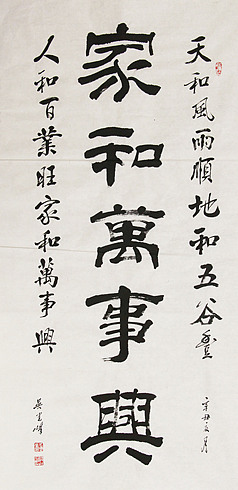 天和風雨順地和五谷豊
辛丑之月
家和萬事興
人和百業旺家和萬事興